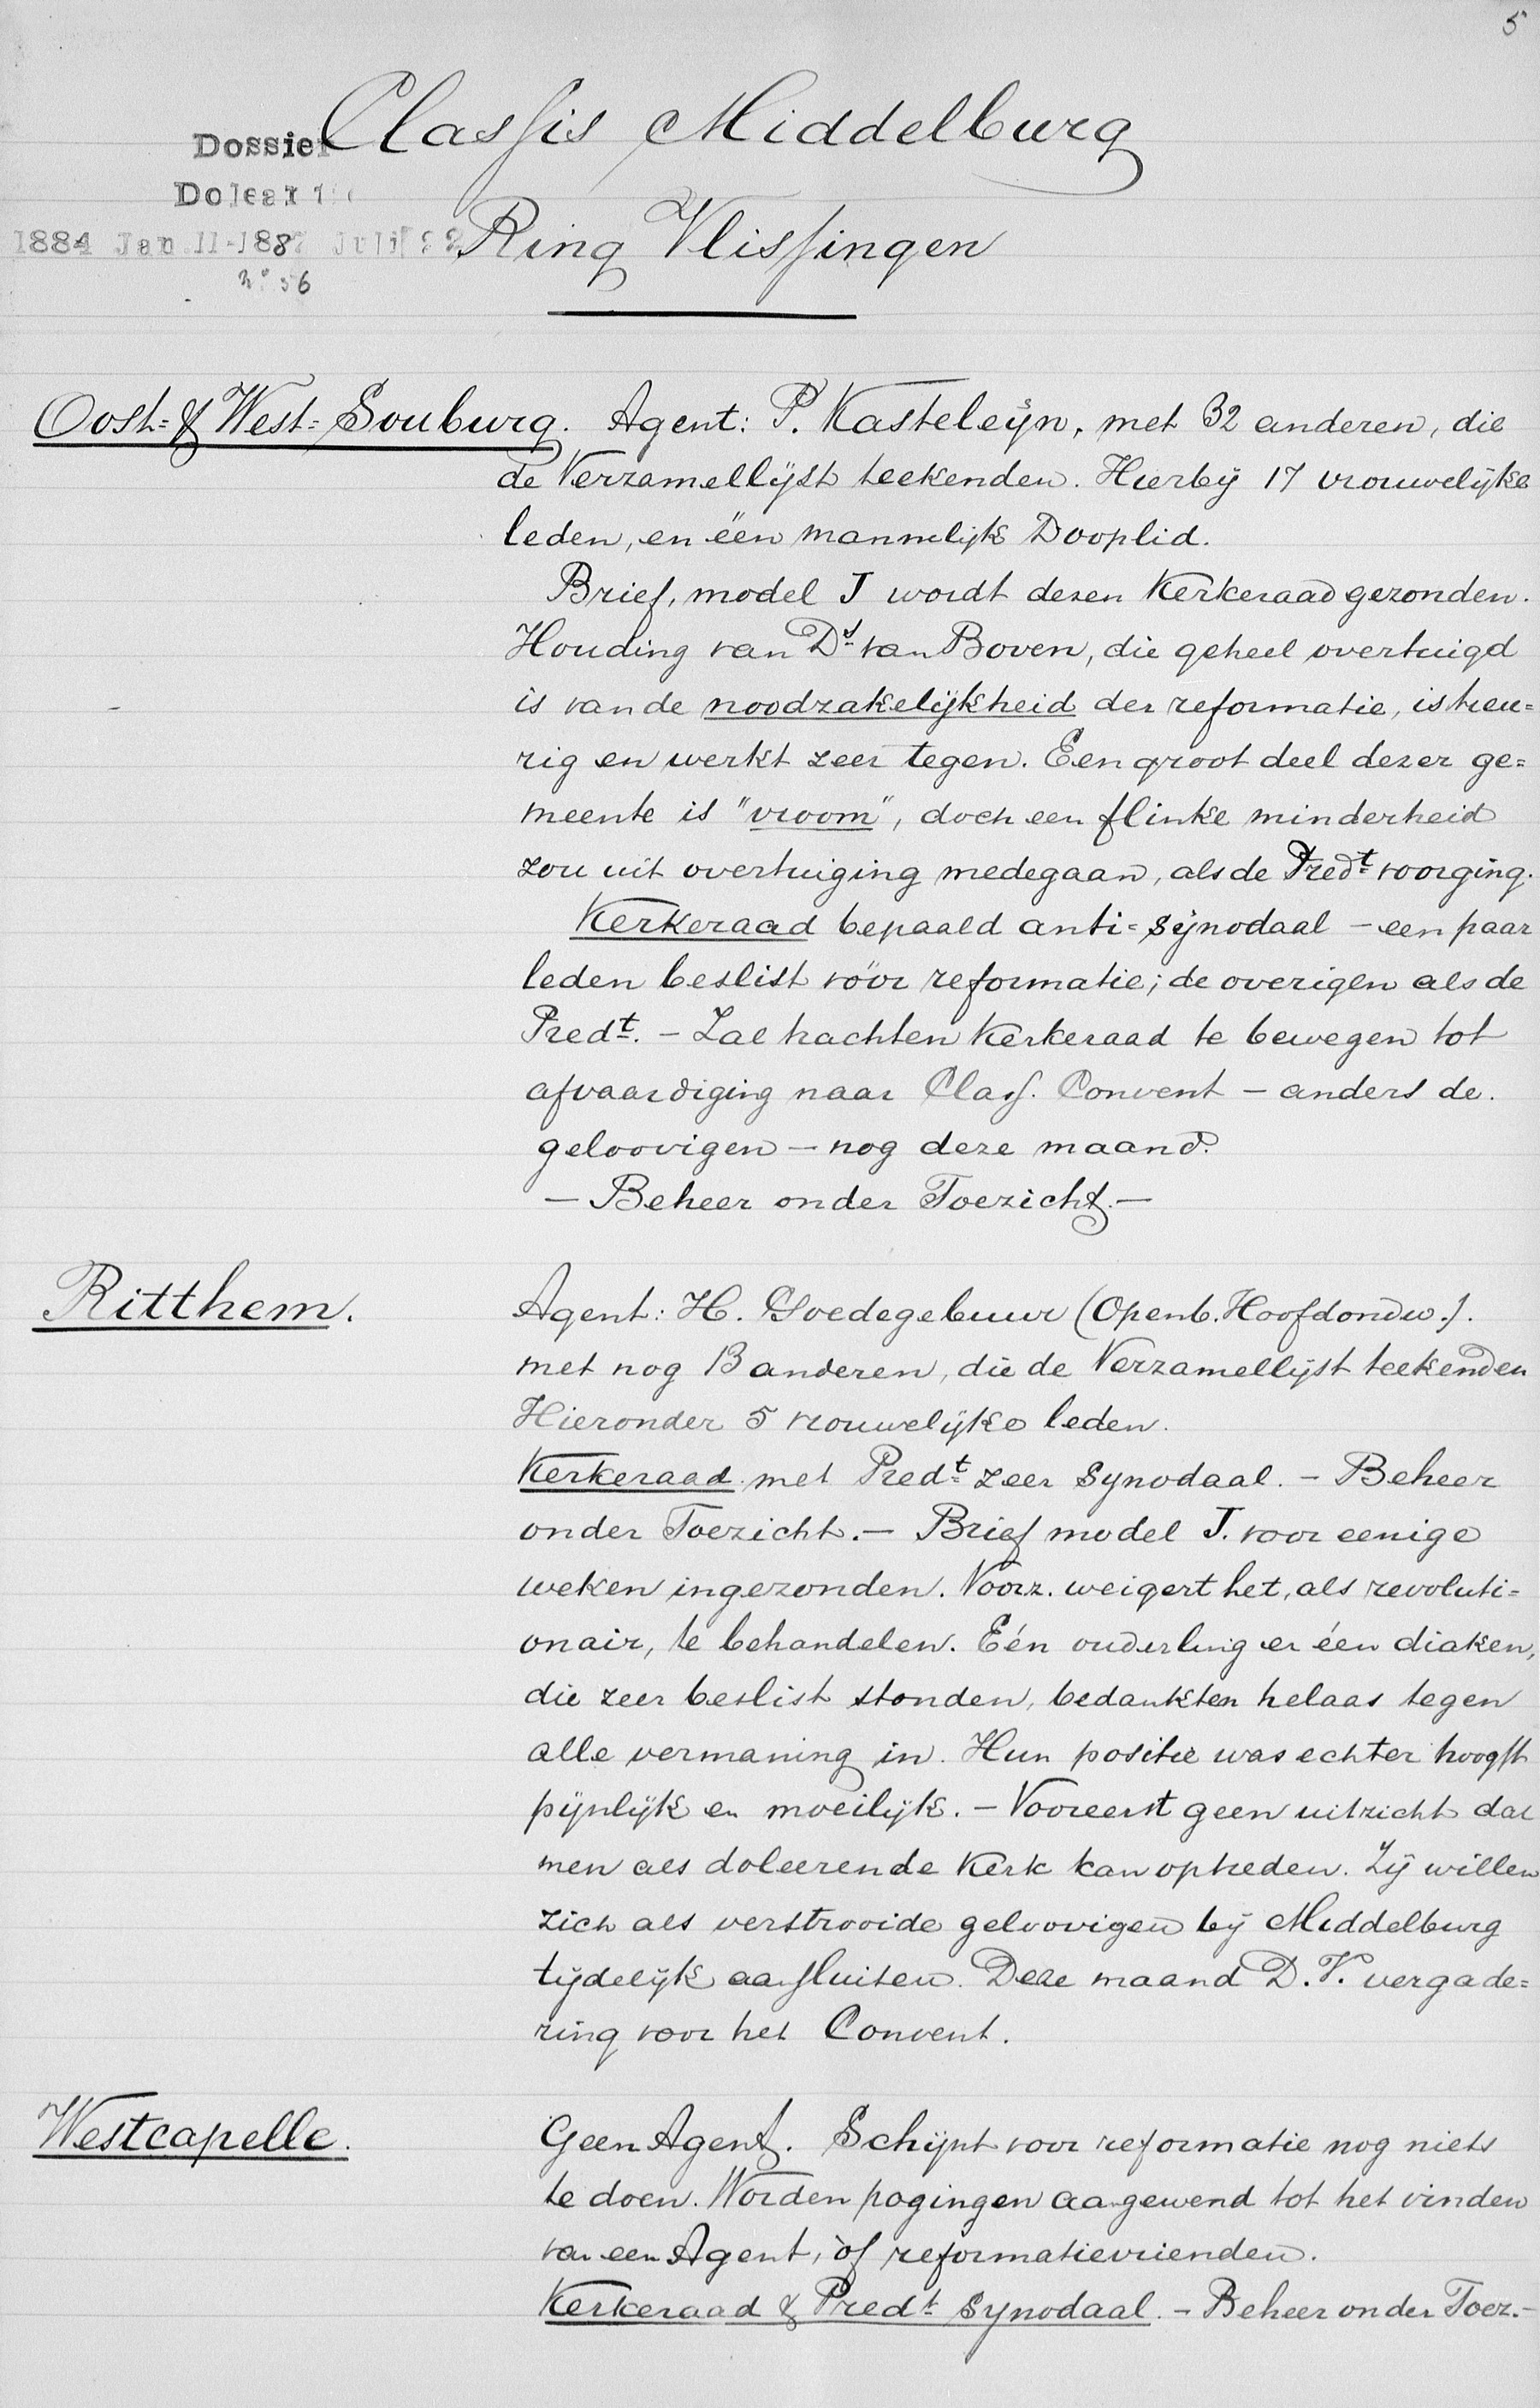 5
Classis Middelburg
Dossier
Doleantie
1884 Jan 11-1887 Juli 22
Ring Vlissingen
No 56
Oost= & West= Souburg. Agent: P. Kasteleijn, met 32 anderen, die
de Verzamellijst teekenden. Hierbij 17 vrouwelijke
leden, en één mannelijk Dooplid.
Brief, model J wordt dezen Kerkeraad gezonden.
Houding van Ds van Boven, die geheel overtuigd
is van de noodzakelijkheid der reformatie, is treu=
rig en werkt zeer tegen. Een groot deel dezer ge=
meente is "vroom", doch een flinke minderheid
zou uit overtuiging medegaan, als de Predt voorging.
Kerkeraad bepaald anti=synodaal — een paar
leden beslist vóór reformatie; de overigen als de
Predt. — Zal trachten Kerkeraad te bewegen tot
afvaardiging naar Class. Convent — anders de
geloovigen — nog deze maand.
— Beheer onder Toezicht. —
Ritthem.
Agent: H. Goedegebuur (Openb. Hoofdonderw.).
met nog 13 anderen, die de Verzamellijst teekenden
Hieronder 5 vrouwelijke leden.
Kerkeraad met Predt zeer synodaal. — Beheer
onder Toezicht. — Brief model J. voor eenige
weken ingezonden. Voorz. weigert het, als revoluti=
onair, te behandelen. Eén ouderling en één diaken,
die zeer beslist stonden, bedankten helaas tegen
alle vermaning in. Hun positie was echter hoogst
pijnlijk en moeilijk. — Vooreerst geen uitzicht dat
men als doleerende Kerk kan optreden. Zij willen
zich als verstrooide geloovigen bij Middelburg
tijdelijk aansluiten. Deze maand D.V. vergade=
ring voor het Convent.
Westcapelle.
Geen Agent. Schijnt voor reformatie nog niets
te doen. Worden pogingen aangewend tot het vinden
van een Agent, òf reformatievrienden.
Kerkeraad & Predt synodaal. — Beheer onder Toez. —